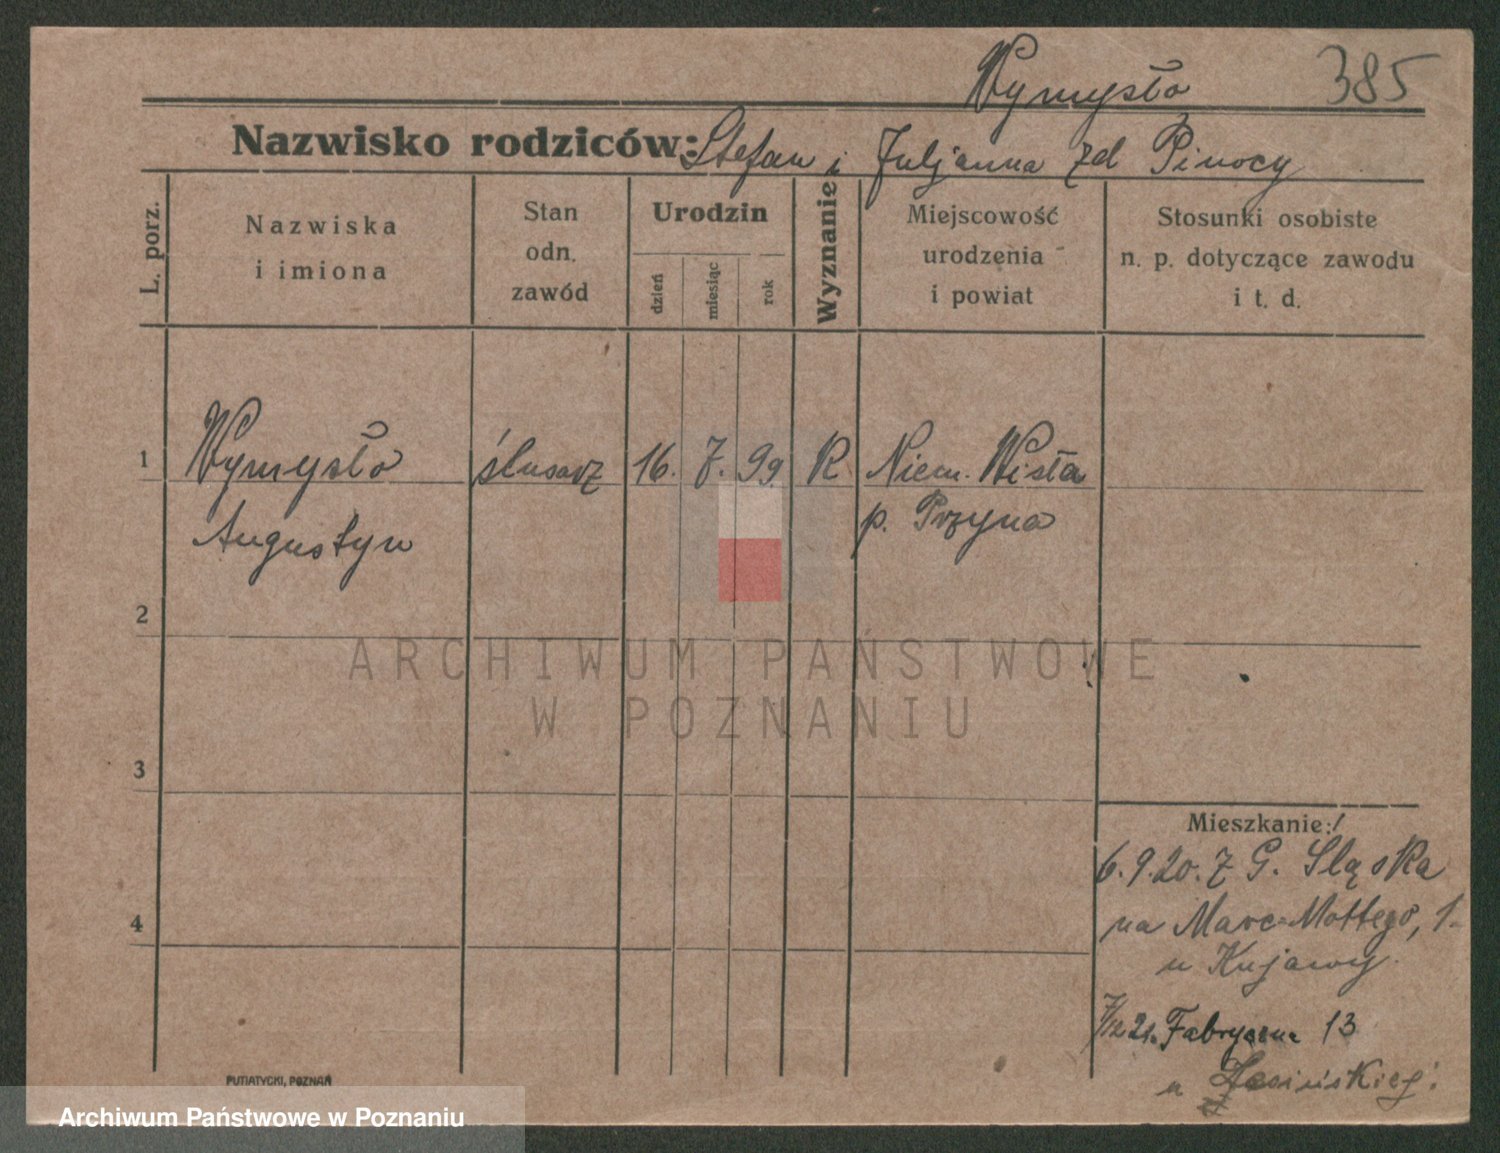 Wymysło 385
Nazwisko rodziców: Stefan i Juljanna zd Pinocy
L. porz.
Nazwiska
i imiona
Stan
odn.
zawód
Urodzin
dzień
miesiąc
rok
Wyznanie
Miejscowość
urodzenia
i powiat
Stosunki osobiste
n. p. dotyczące zawodu
i t. d.
1 Wymysło ślusarz 16. 7. 99 R Niem. Wisła
Augustyn p. Pszyna
2
ARCHIWUM PAŃSTWOWE
W POZNANIU
3
4
Mieszkanie:
6.9.20. z G. Sląska
na Marc. Mottego, 1.
u Kujawy.
7/12 21. Fabryczna 13
u
PUTIATYCKI, POZNAŃ
Archiwum Państwowe w Poznaniu